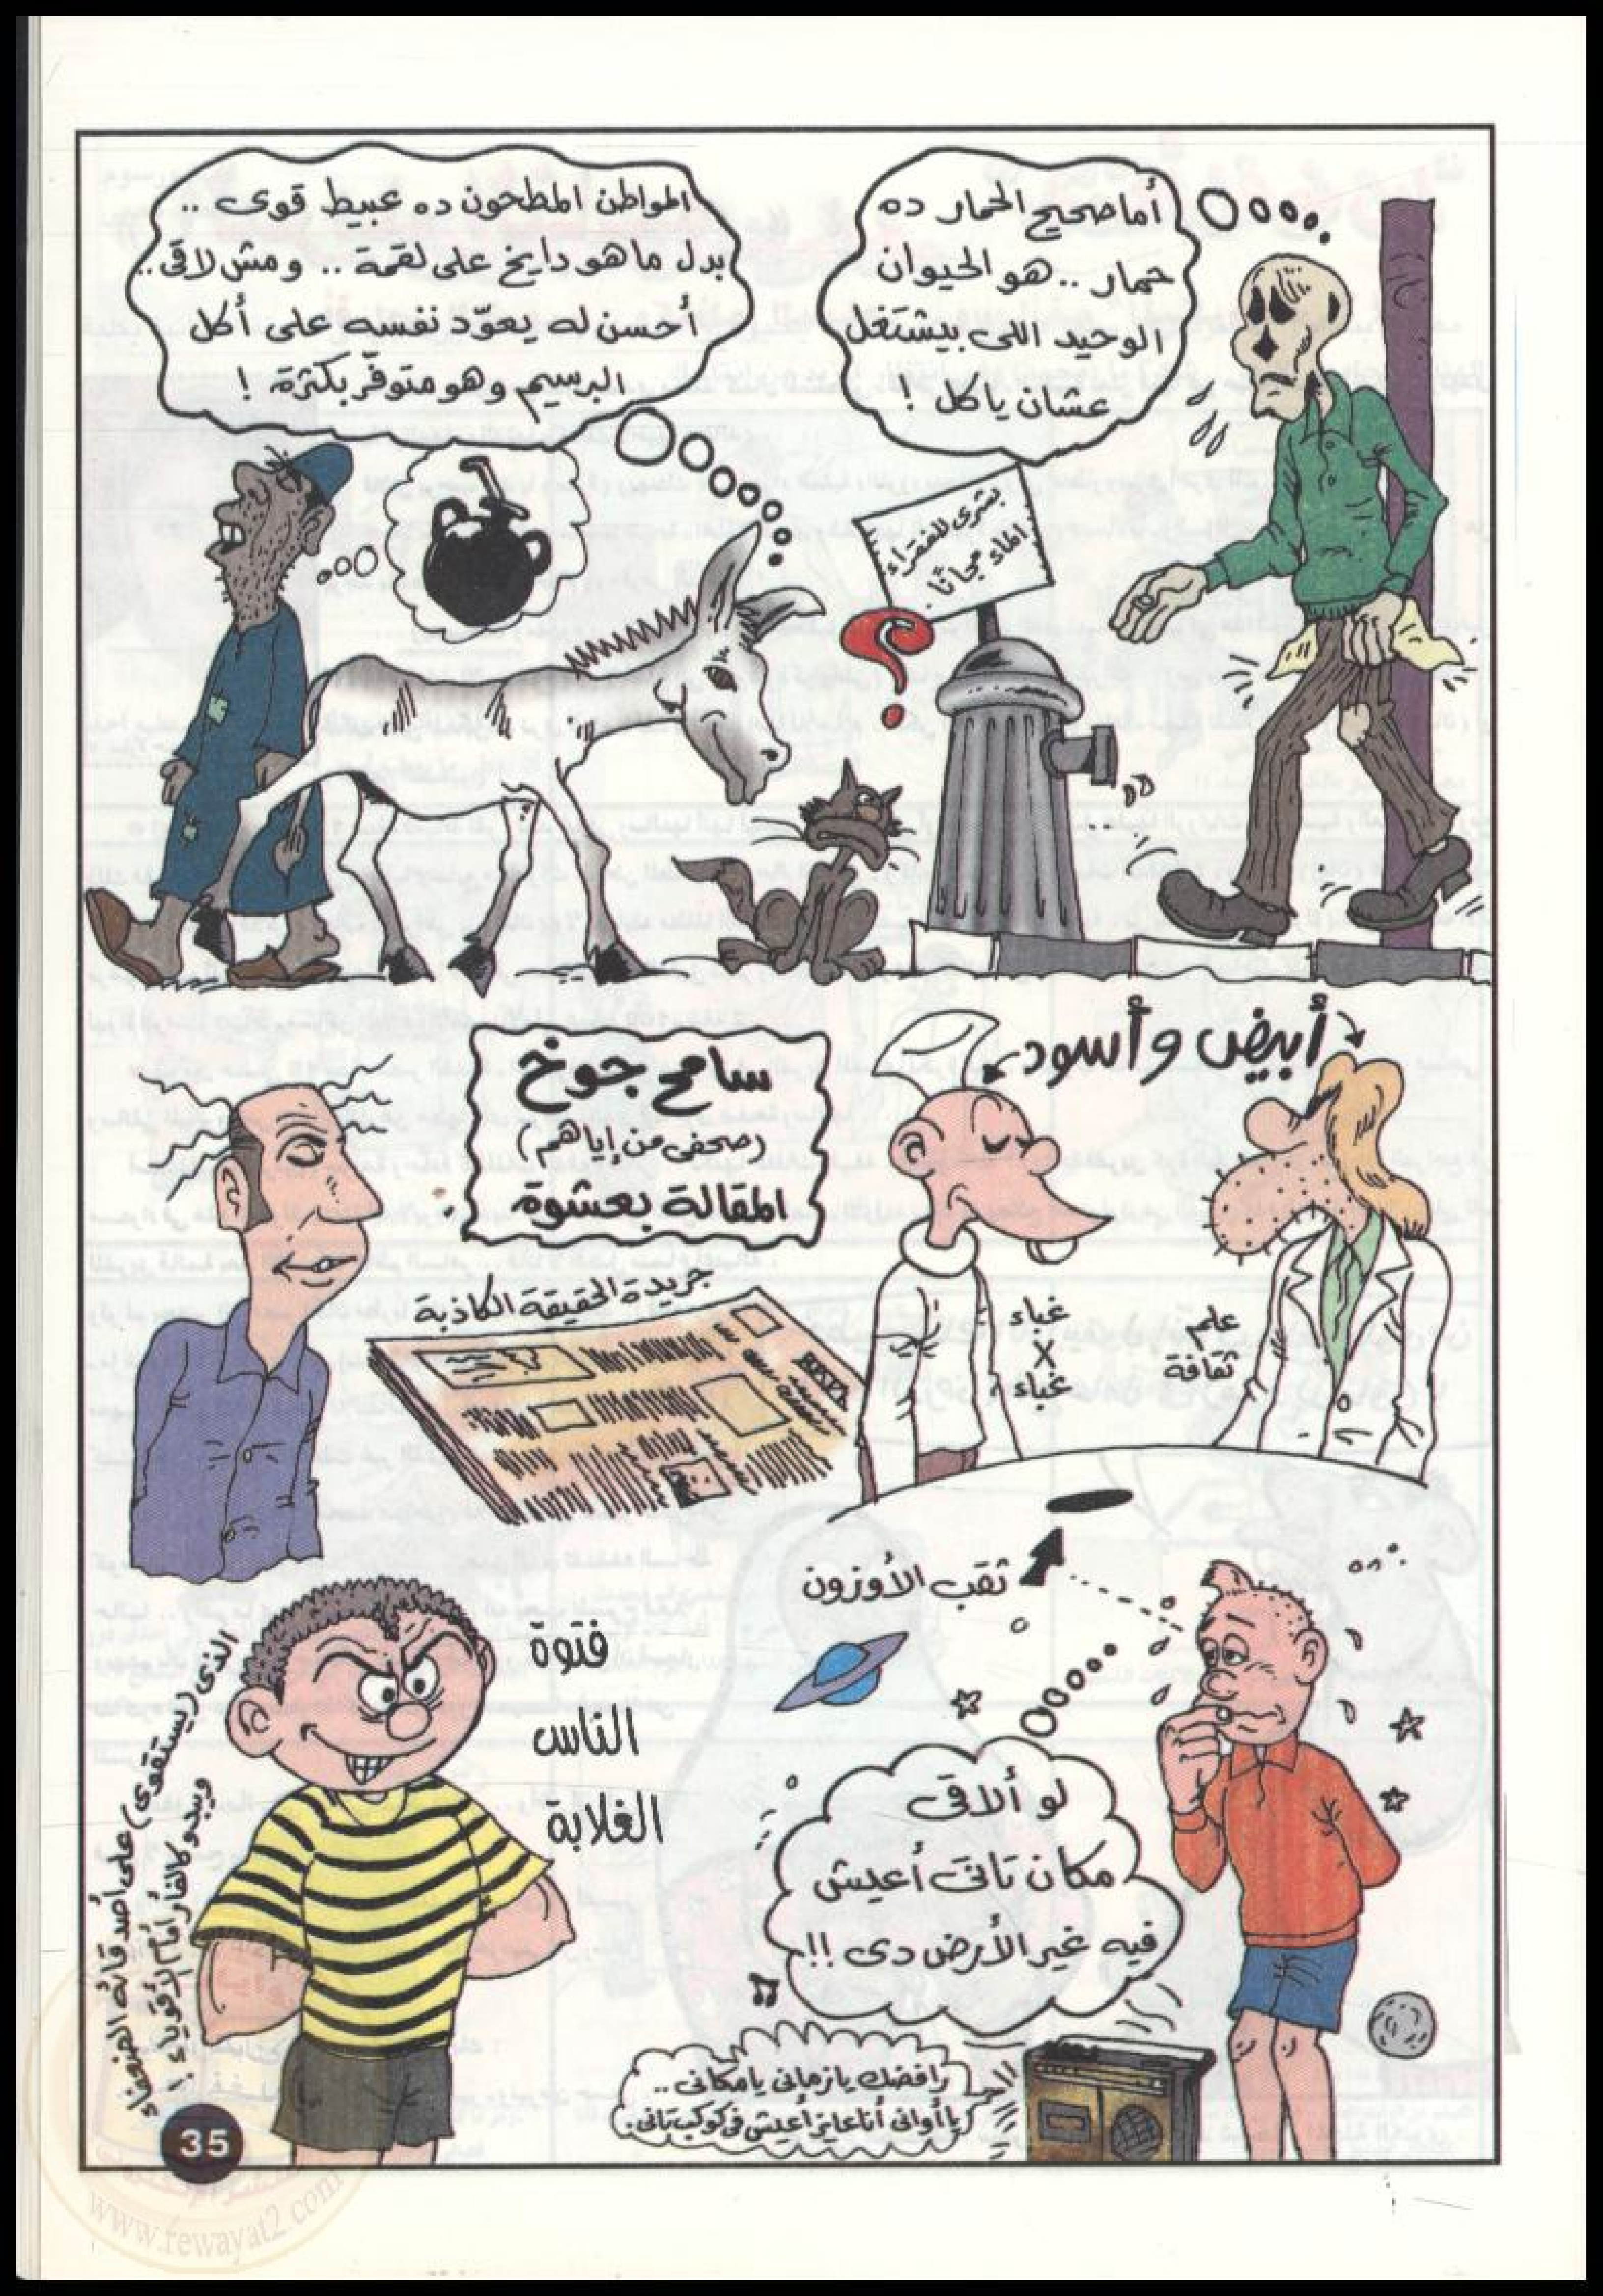 أما صحيح الحمار ده
حمار .. هو الحيوان
الوحيد اللى بيشتغل
عشان ياكل !
المواطن المطحون ده عبيط قوى ..
بدل ما هو دايخ على لقمة .. ومش لاقى ..
أحسن له يعوّد نفسه على أكل
البرسيم وهو متوفّر بكثرة !
بشرى للفقراء
الماء مجانًا.
؟
أبيض وأسود
علم
ثقافة
غباء
X
غباء
سامح جوخ
(صحفى من إياهم)
المقالة بعشوة
جريدة الحقيقة الكاذبة
ثقب الأوزون
لو ألاقى
مكان تانى أعيش
فيه غير الأرض دى !!
رافضك يا زمانى يا مكانى ..
يا أوانى أنا عايز أعيش فى كوكب تانى.
فتوة
الناس
الغلابة
الذى (يستقوى) على أصدقائه الضعفاء
ويبدو كالفأر أمام الأقوياء !
35
www.rewayat2.com